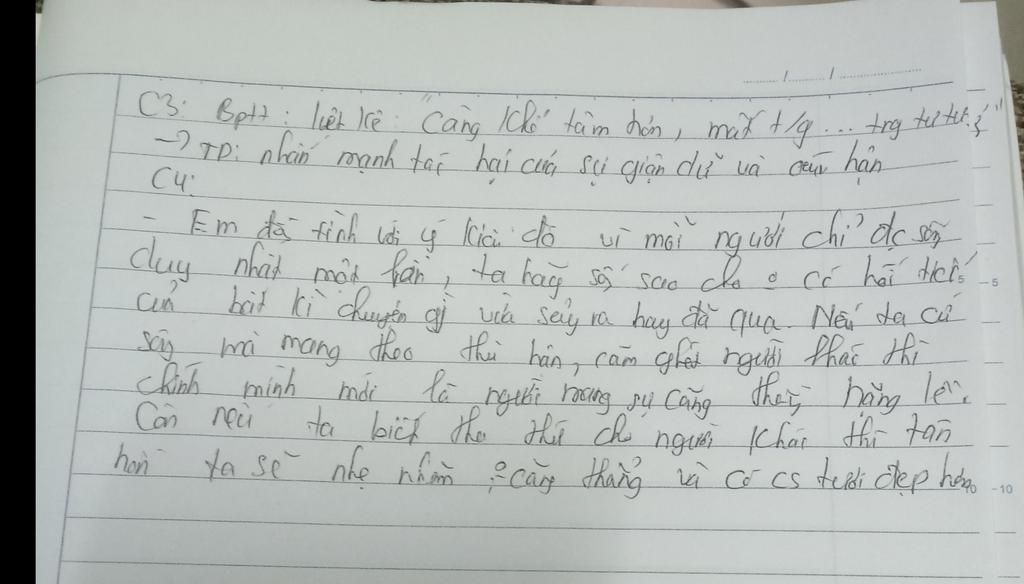 C3: Bptt: liệt kê: "Càng khó tâm hồn, mất t/g ... trg tư
→ TD: nhấn mạnh tác hại của sự giận dữ và oán hận
C4:
- Em đồng tình với ý kiến đó vì mỗi người chỉ đc sống
duy nhất một lần, ta hãy số sao cho o có hối
bất kì chuyện gì vừa sảy ra hay đã qua. Nếu ta cứ
sống mà mang theo thù hận, căm ghét người khác thì
chính mình mới là người mang sự căng thẳng
Còn nếu ta biết tha thứ cho người khác thì tân
hồn ta sẽ nhẹ nhõm, o căng thẳng và có cs tươi đẹp hơn